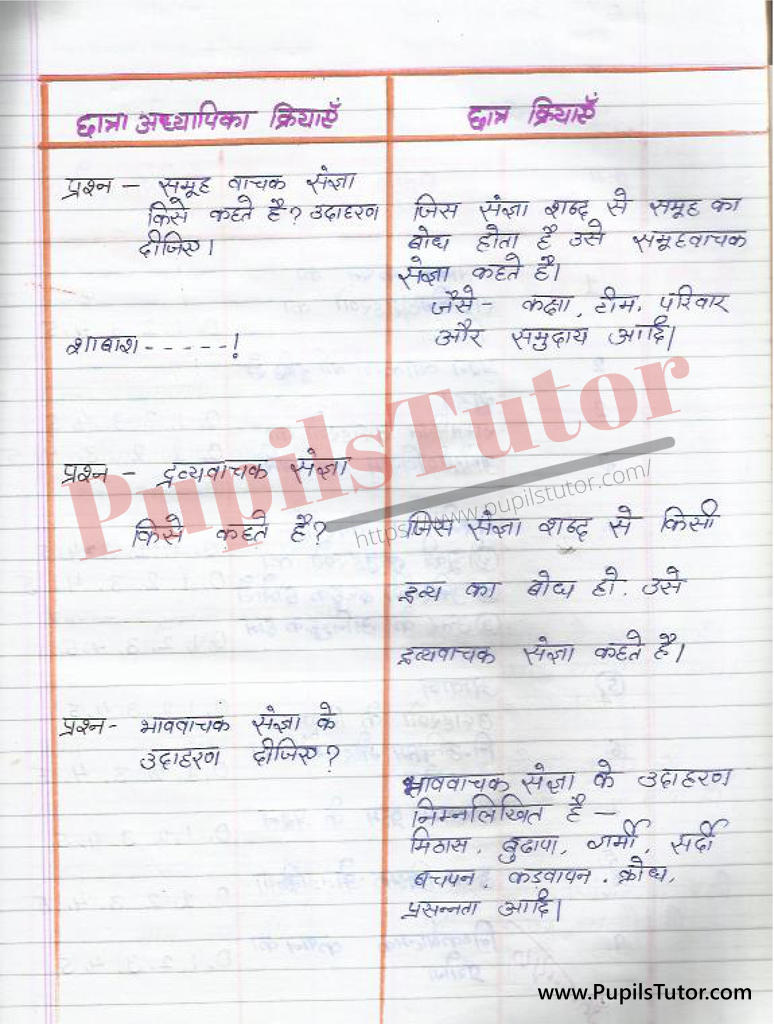 छात्रा अध्यापिका क्रियाएँ
प्रश्न - समूह वाचक संज्ञा
किसे कहते है? उदाहरण
दीजिए।
शाबाश - - - - - !
प्रश्न - द्रव्यवाचक संज्ञा
किसे कहते है?
प्रश्न- भाववाचक संज्ञा के
उदाहरण दीजिए?
छात्र क्रियाएँ
जिस संज्ञा शब्द से समूह का
बोध होता है उसे समूहवाचक
संज्ञा कहते है।
जैसे - कक्षा, टीम, परिवार
और समुदाय आदि।
जिस संज्ञा शब्द से किसी
द्रव्य का बोध हो. उसे
द्रव्यवाचक संज्ञा कहते है।
भाववाचक संज्ञा के उदाहरण
निम्नलिखित है -
मिठास, बुढापा, गर्मी, सर्दी
बचपन, कडवापन, क्रोध,
प्रसन्नता आदि।
PupilsTutor
https://www.pupilstutor.com/
www.PupilsTutor.com